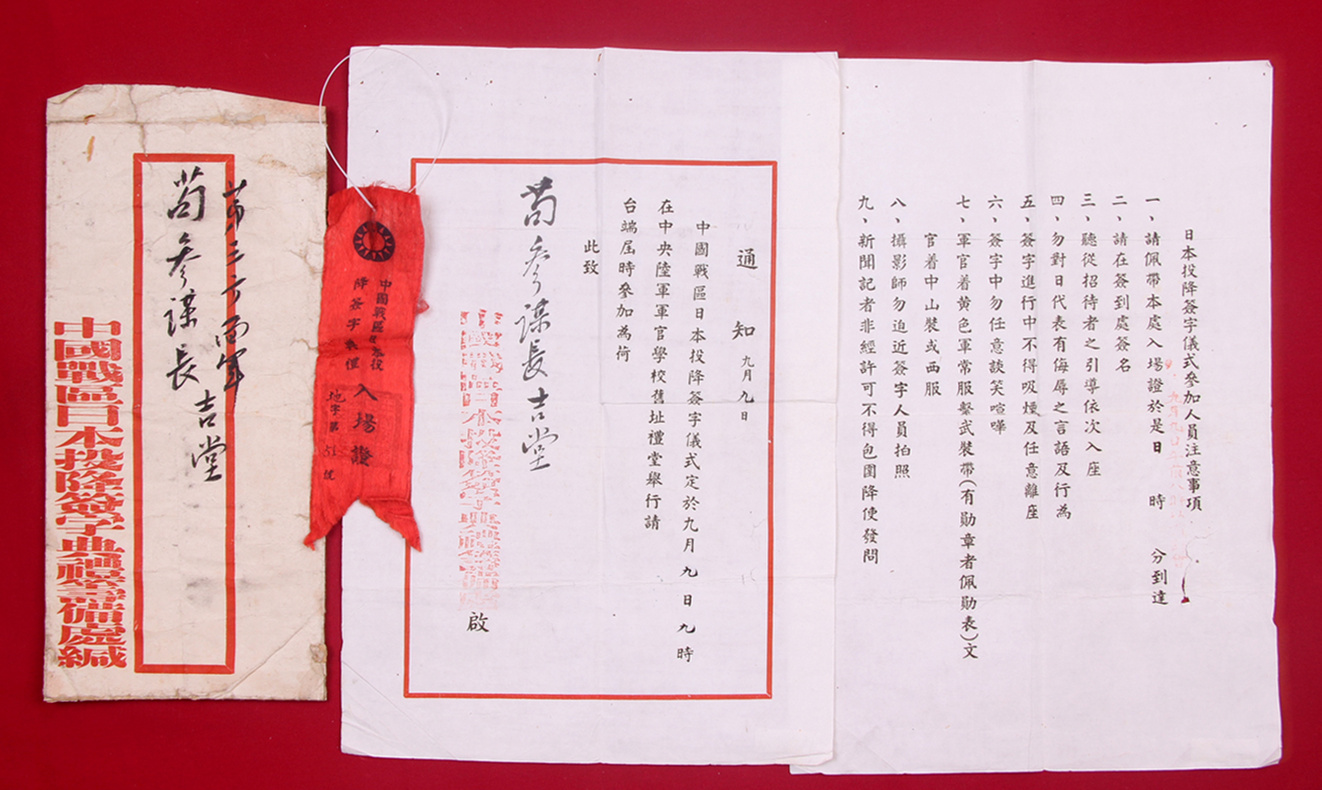 第三方面軍
苟參謀長吉堂
中國戰區日本投降簽字典禮籌備處緘
中國戰區日本投
降簽字典禮
入場證
地字第
號
通知 九月九日
中國戰區日本投降簽字儀式定於九月九日九時
在中央陸軍軍官學校舊址禮堂舉行請
台端屆時參加為荷
此致
苟參謀長吉堂
中國戰區日本投降簽字典禮籌備處
啟
日本投降簽字儀式參加人員注意事項
一、請佩帶本處入場證於是日 時 分到達
二、請在簽到處簽名
三、聽從招待者之引導依次入座
四、勿對日代表有侮辱之言語及行為
五、簽字進行中不得吸煙及任意離座
六、簽字中勿任意談笑喧嘩
七、軍官着黃色軍常服繫武裝帶(有勛章者佩勛表)文
官着中山裝或西服
八、攝影師勿迫近簽字人員拍照
九、新聞記者非經許可不得包圍降使發問